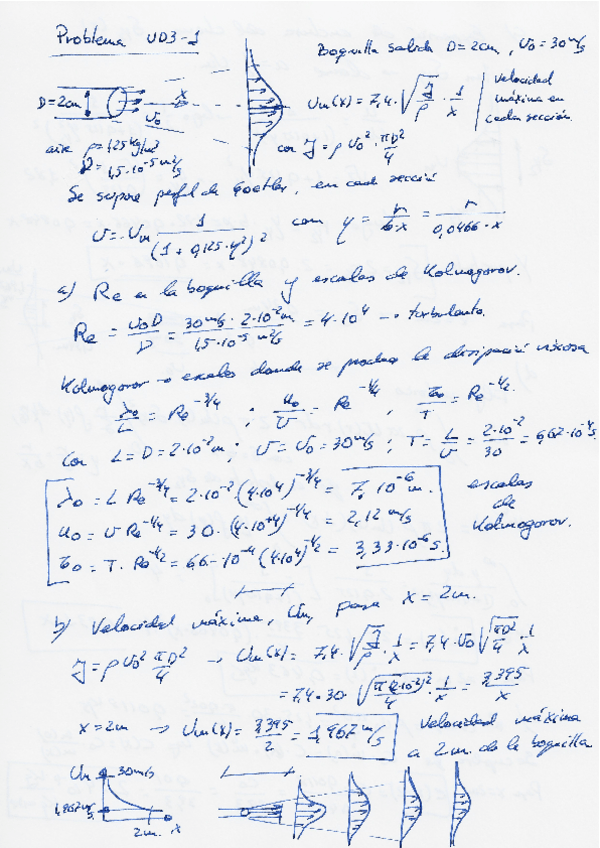 Problema UD3-1
Boquilla salida D=2cm, U₀=30m/s
D=2cm
x
U₀
Um(x) = 7,4 · √(J/ρ) · 1/x
Velocidad
máxima en
cada sección
aire ρ=1,25 kg/m³
ν=1,5·10⁻⁵ m²/s
con J = ρ U₀² · πD²/4
Se supone perfil de Goetler, en cada sección
U = Um 1/(1 + 0,125·η²)² con η = r/(σ·x) = r/(0,0466·x)
a) Re en la boquilla y escalas de Kolmogorov.
Re = U₀D/ν = 30 m/s · 2·10⁻² m / 1,5·10⁻⁵ m²/s = 4·10⁴ → turbulento.
Kolmogorov → escalas donde se produce la disipación viscosa
λ₀/L = Re^(-3/4) ; u₀/U = Re^(-1/4) ; τ₀/T = Re^(-1/2)
Con L=D=2·10⁻² m ; U=U₀=30m/s ; T = L/U = 2·10⁻²/30 = 6,67·10⁻⁴ s
λ₀ = L Re^(-3/4) = 2·10⁻² · (4·10⁴)^(-3/4) = 7,·10⁻⁶ m.
u₀ = U Re^(-1/4) = 30 · (4·10⁺⁴)^(-1/4) = 2,12 m/s
τ₀ = T · Re^(-1/2) = 6,6·10⁻⁴ (4·10⁴)^(-1/2) = 3,33·10⁻⁶ s.
escalas
de
Kolmogorov.
b) Velocidad máxima, Um, para x = 2m.
J = ρ U₀² πD²/4 → Um(x) = 7,4 · √(J/ρ) · 1/x = 7,4 · U₀ √(πD²/4) · 1/x
= 7,4 · 30 √(π(2·10⁻²)²/4) · 1/x = 3,395/x
x=2m → Um(x) = 3,395/2 = 1,967 m/s
Velocidad máxima
a 2m. de la boquilla
Um
30m/s
1,967 m/s
2m.
x